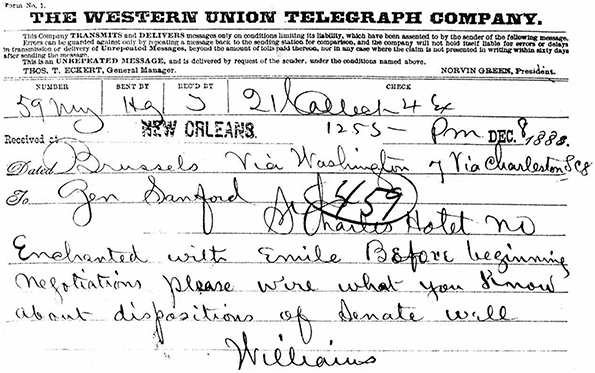 Form No. 1.
THE WESTERN UNION TELEGRAPH COMPANY.
This Company TRANSMITS and DELIVERS messages only on conditions limiting its liability, which have been assented to by the sender of the following message.
Errors can be guarded against only by repeating a message back to the sending station for comparison, and the company will not hold itself liable for errors or delays
in transmission or delivery of Unrepeated Messages, beyond the amount of tolls paid thereon, nor in any case where the claim is not presented in writing within sixty days
after sending the message.
This is an UNREPEATED MESSAGE, and is delivered by request of the sender, under the conditions named above.
THOS. T. ECKERT, General Manager. NORVIN GREEN, President.
NUMBER SENT BY REC'D BY CHECK
59 Ny Hq J 21 4 Ex
Received at NEW ORLEANS. 1255- Pm DEC. 8 1883.
Dated Brussels Via Washington 7 Via Charleston SC 8
To Gen Sanford 459
St Charles Hotel NO
Enchanted with Emile Before beginning
negotiations please wire what you know
about dispositions of Senate will
Williams